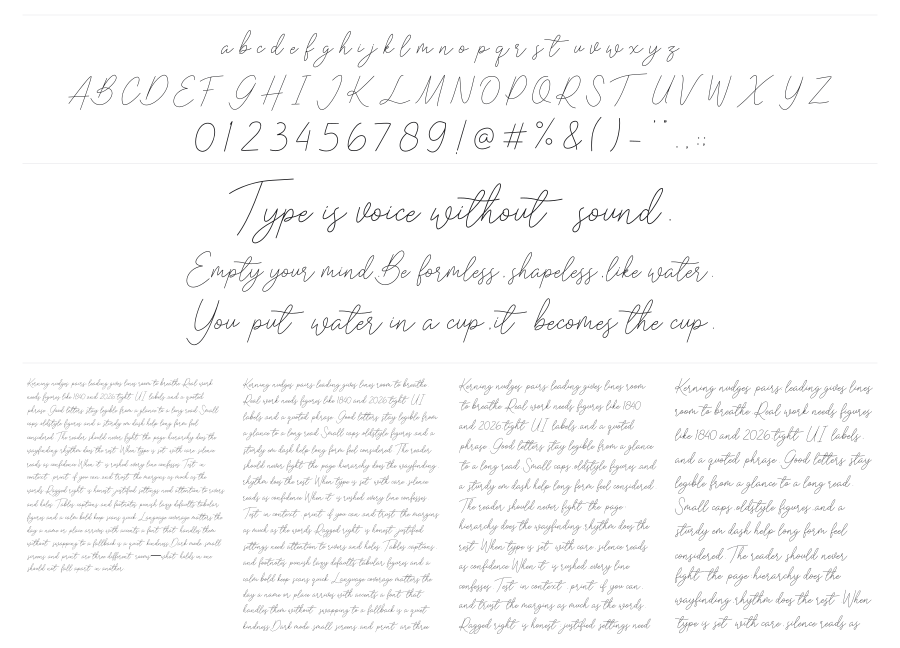 a b c d e f g h i j k l m n o p q r s t u v w x y z
A B C D E F G H I J K L M N O P Q R S T U V W X Y Z
0 1 2 3 4 5 6 7 8 9 ! @ # % & ( ) - ' " . , : ;
Type is voice without sound.
Empty your mind.Be formless.shapeless.like water.
You put water in a cup.it becomes the cup.
Kerning nudges pairs leading gives lines room to breathe Real work
needs figures like 1840 and 2026 tight UI labels and a quoted
phrase Good letters stay legible from a glance to a long read Small
caps oldstyle figures and a sturdy em dash help long form feel
considered The reader should never fight the page hierarchy does the
wayfinding rhythm does the rest When type is set with care silence
reads as confidence When it is rushed every line confesses Test in
context print if you can and trust the margins as much as the
words Ragged right is honest justified settings need attention to rivers
and holes Tables captions and footnotes punish lazy defaults tabular
figures and a calm bold keep scans quick Language coverage matters the
day a name or place arrives with accents a font that handles them
without swapping to a fallback is a quiet kindness Dark mode small
screens and print are three different rooms—what holds in one
should not fall apart in another
Kerning nudges pairs leading gives lines room to breathe
Real work needs figures like 1840 and 2026 tight UI
labels and a quoted phrase Good letters stay legible from
a glance to a long read Small caps oldstyle figures and a
sturdy em dash help long form feel considered The reader
should never fight the page hierarchy does the wayfinding
rhythm does the rest When type is set with care silence
reads as confidence When it is rushed every line confesses
Test in context print if you can and trust the margins
as much as the words Ragged right is honest justified
settings need attention to rivers and holes Tables captions
and footnotes punish lazy defaults tabular figures and a
calm bold keep scans quick Language coverage matters the
day a name or place arrives with accents a font that
handles them without swapping to a fallback is a quiet
kindness Dark mode small screens and print are three
Kerning nudges pairs leading gives lines room
to breathe Real work needs figures like 1840
and 2026 tight UI labels and a quoted
phrase Good letters stay legible from a glance
to a long read Small caps oldstyle figures and
a sturdy em dash help long form feel considered
The reader should never fight the page
hierarchy does the wayfinding rhythm does the
rest When type is set with care silence reads
as confidence When it is rushed every line
confesses Test in context print if you can
and trust the margins as much as the words
Ragged right is honest justified settings need
Kerning nudges pairs leading gives lines
room to breathe Real work needs figures
like 1840 and 2026 tight UI labels
and a quoted phrase Good letters stay
legible from a glance to a long read
Small caps oldstyle figures and a
sturdy em dash help long form feel
considered The reader should never
fight the page hierarchy does the
wayfinding rhythm does the rest When
type is set with care silence reads as